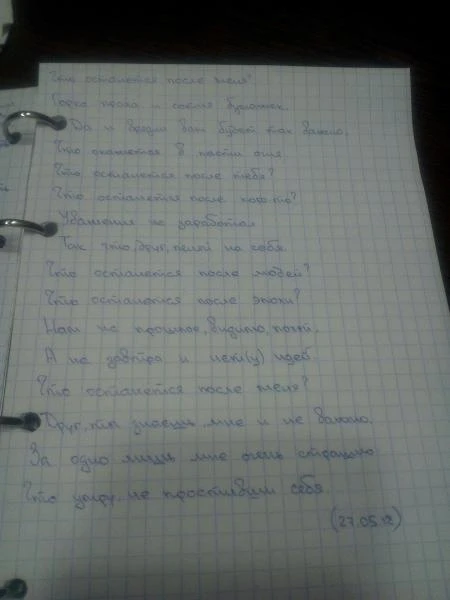 Что останется после меня?
Горка праха и сотня бумажек.
Да и вредли вам будет так важно,
Что окажется в пасти огня.
Что останется после тебя?
Что останется после кого-то?
Уважения не заработал
Так что, друг, пеняй на себя.
Что останется после людей?
Что останется после эпохи?
Нам на прошлое, видимо, похй,
А на завтра и нем(у) идей
Что останется после меня?
Друг, ты знаешь, мне и не важно.
За одно лишь мне очень страшно
Что умру, не простивши себя.
(27.05.12)